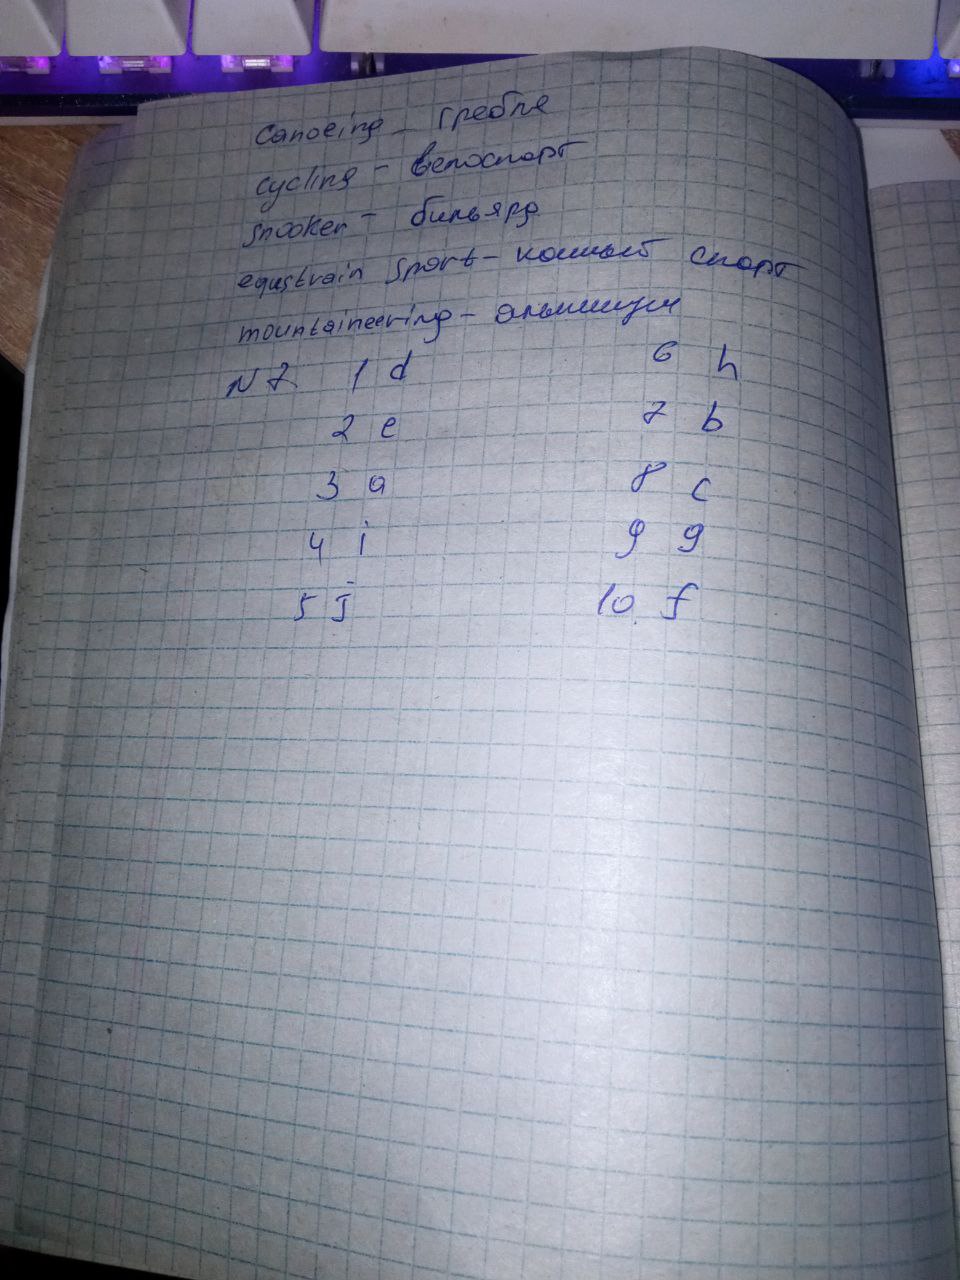 canoeing - гребля
cycling - велоспорт
snooker - бильярд
equstrain sport - конный спорт
mountaineering - альпинизм
N 7 1 d 6 h
2 e 7 b
3 a 8 c
4 i 9 g
5 j 10 f